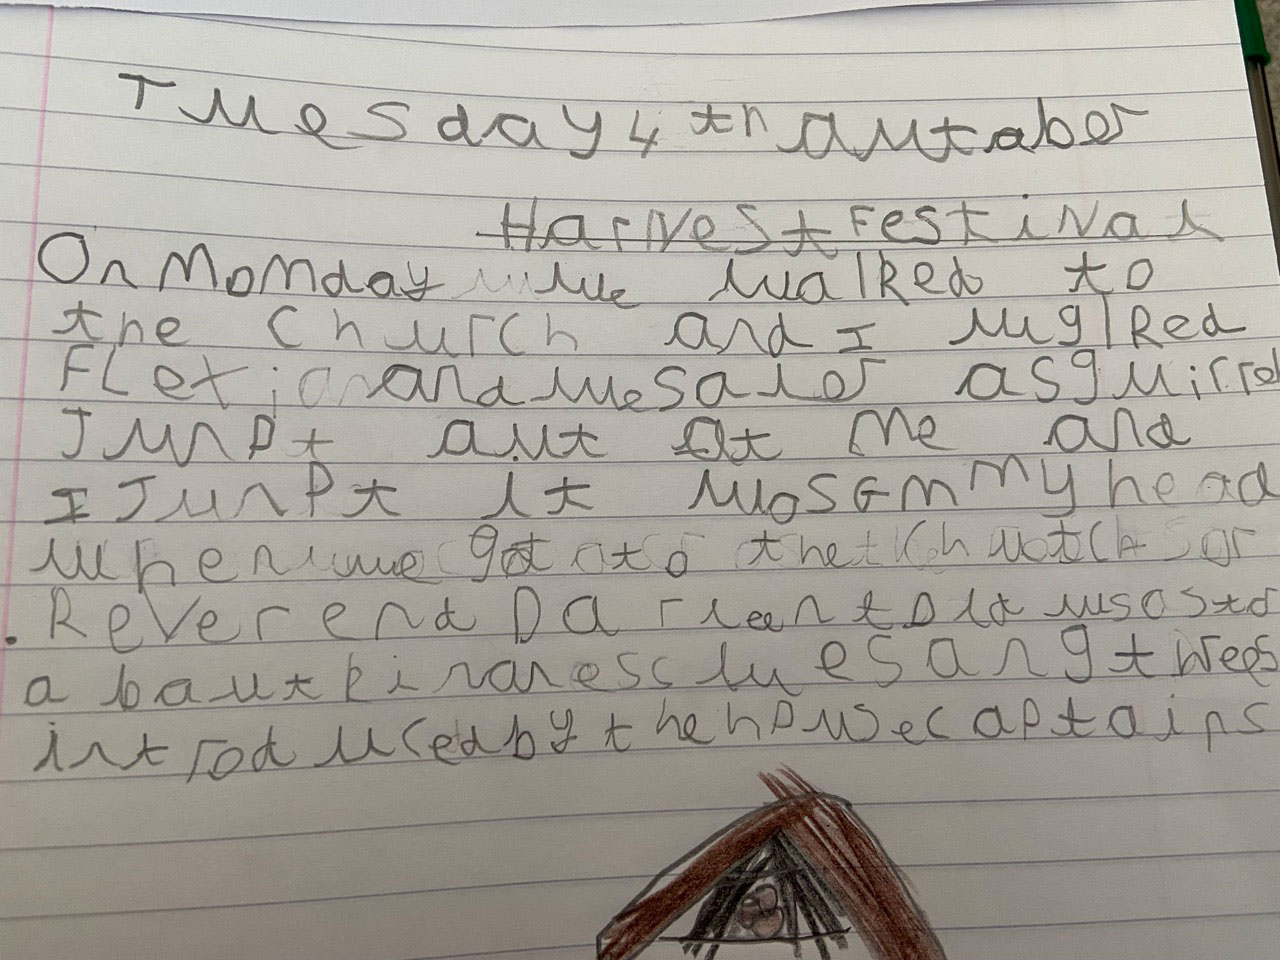 Tuesday 4th autaber
Harvest Festival
On Monday we walked to
the church and I walked
and we saw a sguirrel
Jumpt aut at me and
I Jumpt it wos on my head
when we got to the
Reverend Darleen told us
a baut kindness we sang t wees
introduced by the house captains